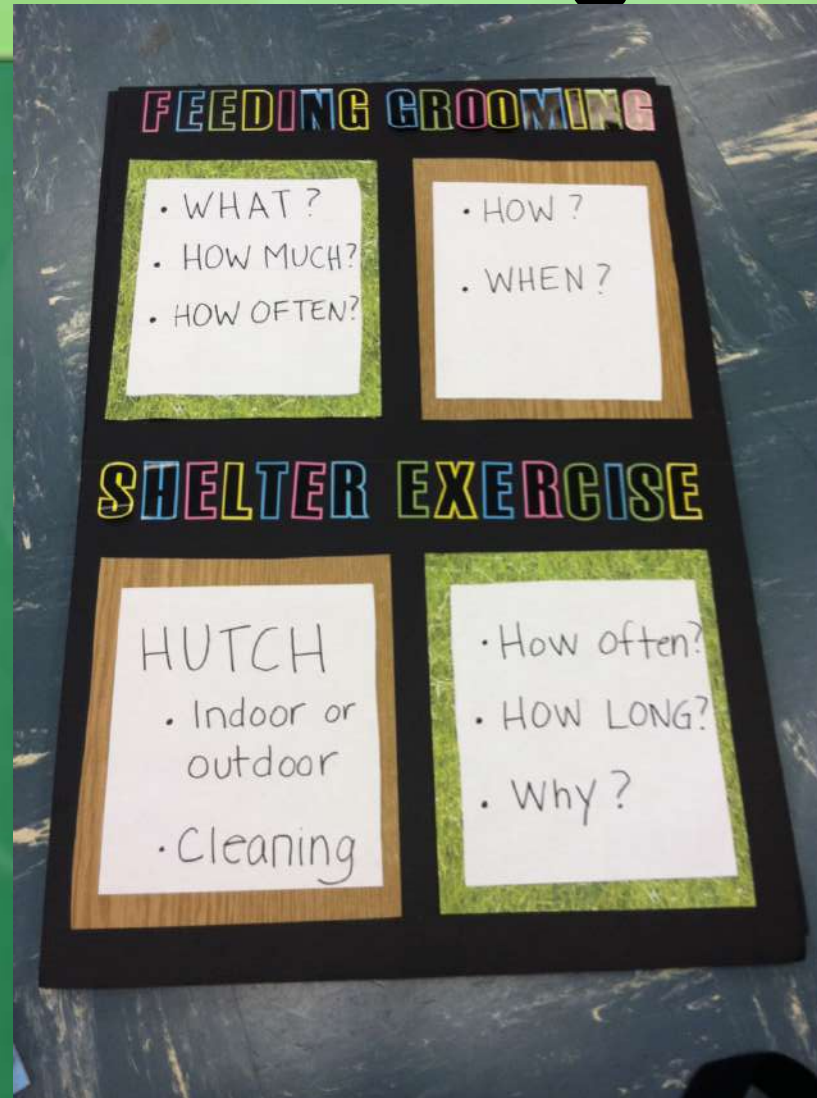 FEEDING GROOMING
• WHAT?
• HOW MUCH?
• HOW OFTEN?
• HOW?
• WHEN?
SHELTER EXERCISE
HUTCH
• Indoor or
outdoor
• Cleaning
• How often?
• HOW LONG?
• Why?